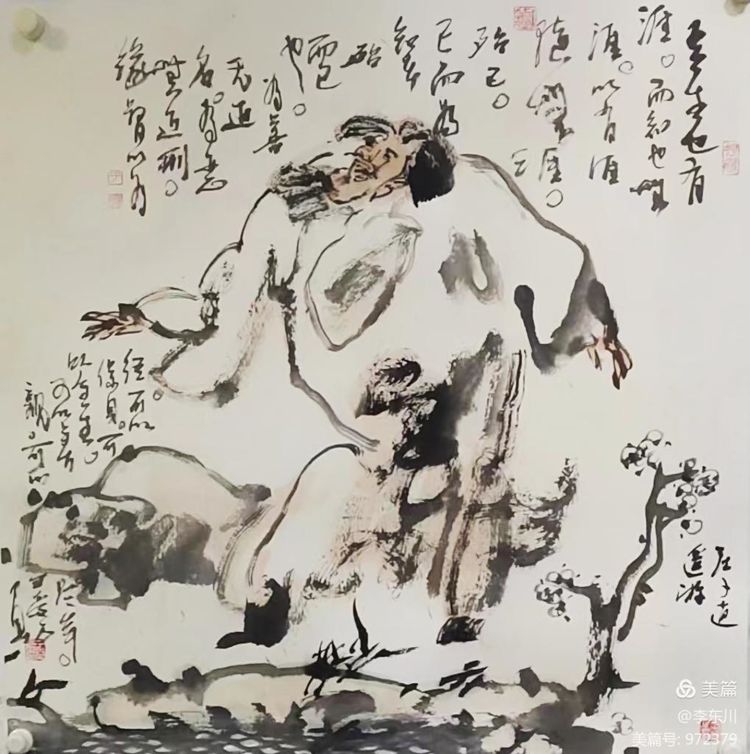 吾生也有
涯。而知也無
涯。以有涯
随無涯。
殆已。
已而为
知者
殆
而已
也。为善
无近
名。为恶
無近刑。
缘督以为
经。可以
保身。可
以全生。
可以养
親。可以
尽年。
庄子逍
遥游
美篇
@李东川
美篇号: 972379